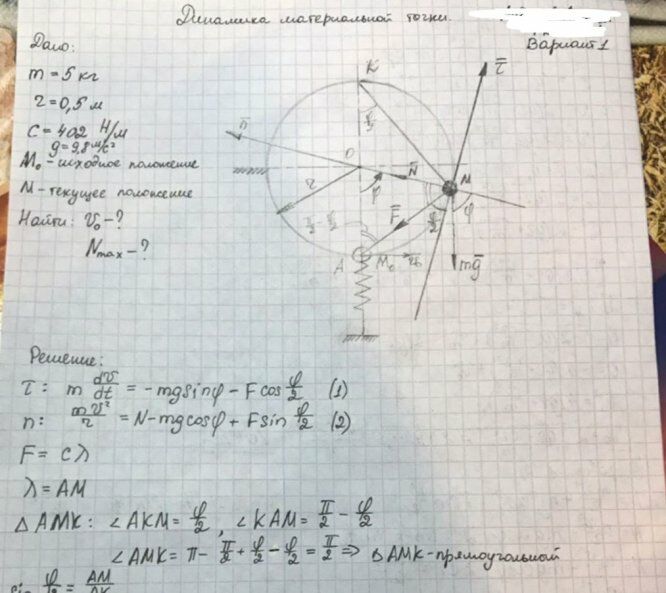 Динамика материальной точки.
Вариант 1
Дано:
m = 5 кг
r = 0,5 м
c = 402 Н/м
g = 9,8 м/с²
M₀ - исходное положение
M - текущее положение
Найти: v₀ - ?
Nmax - ?
K
τ̅
n̅
φ/2
O
N̅
M
r
φ
F̅
φ/2
φ
π/2 - φ/2
A
M₀
v̅₀
mg̅
Решение:
τ: m dv̅/dt = -mg sinφ - F cos φ/2 (1)
n: mv²/r = N - mg cosφ + F sin φ/2 (2)
F = cλ
λ = AM
△ AMK: ∠AKM = φ/2, ∠KAM = π/2 - φ/2
∠AMK = π - π/2 + φ/2 - φ/2 = π/2 ⇒ △AMK - прямоугольный
sin φ/2 = AM/AK